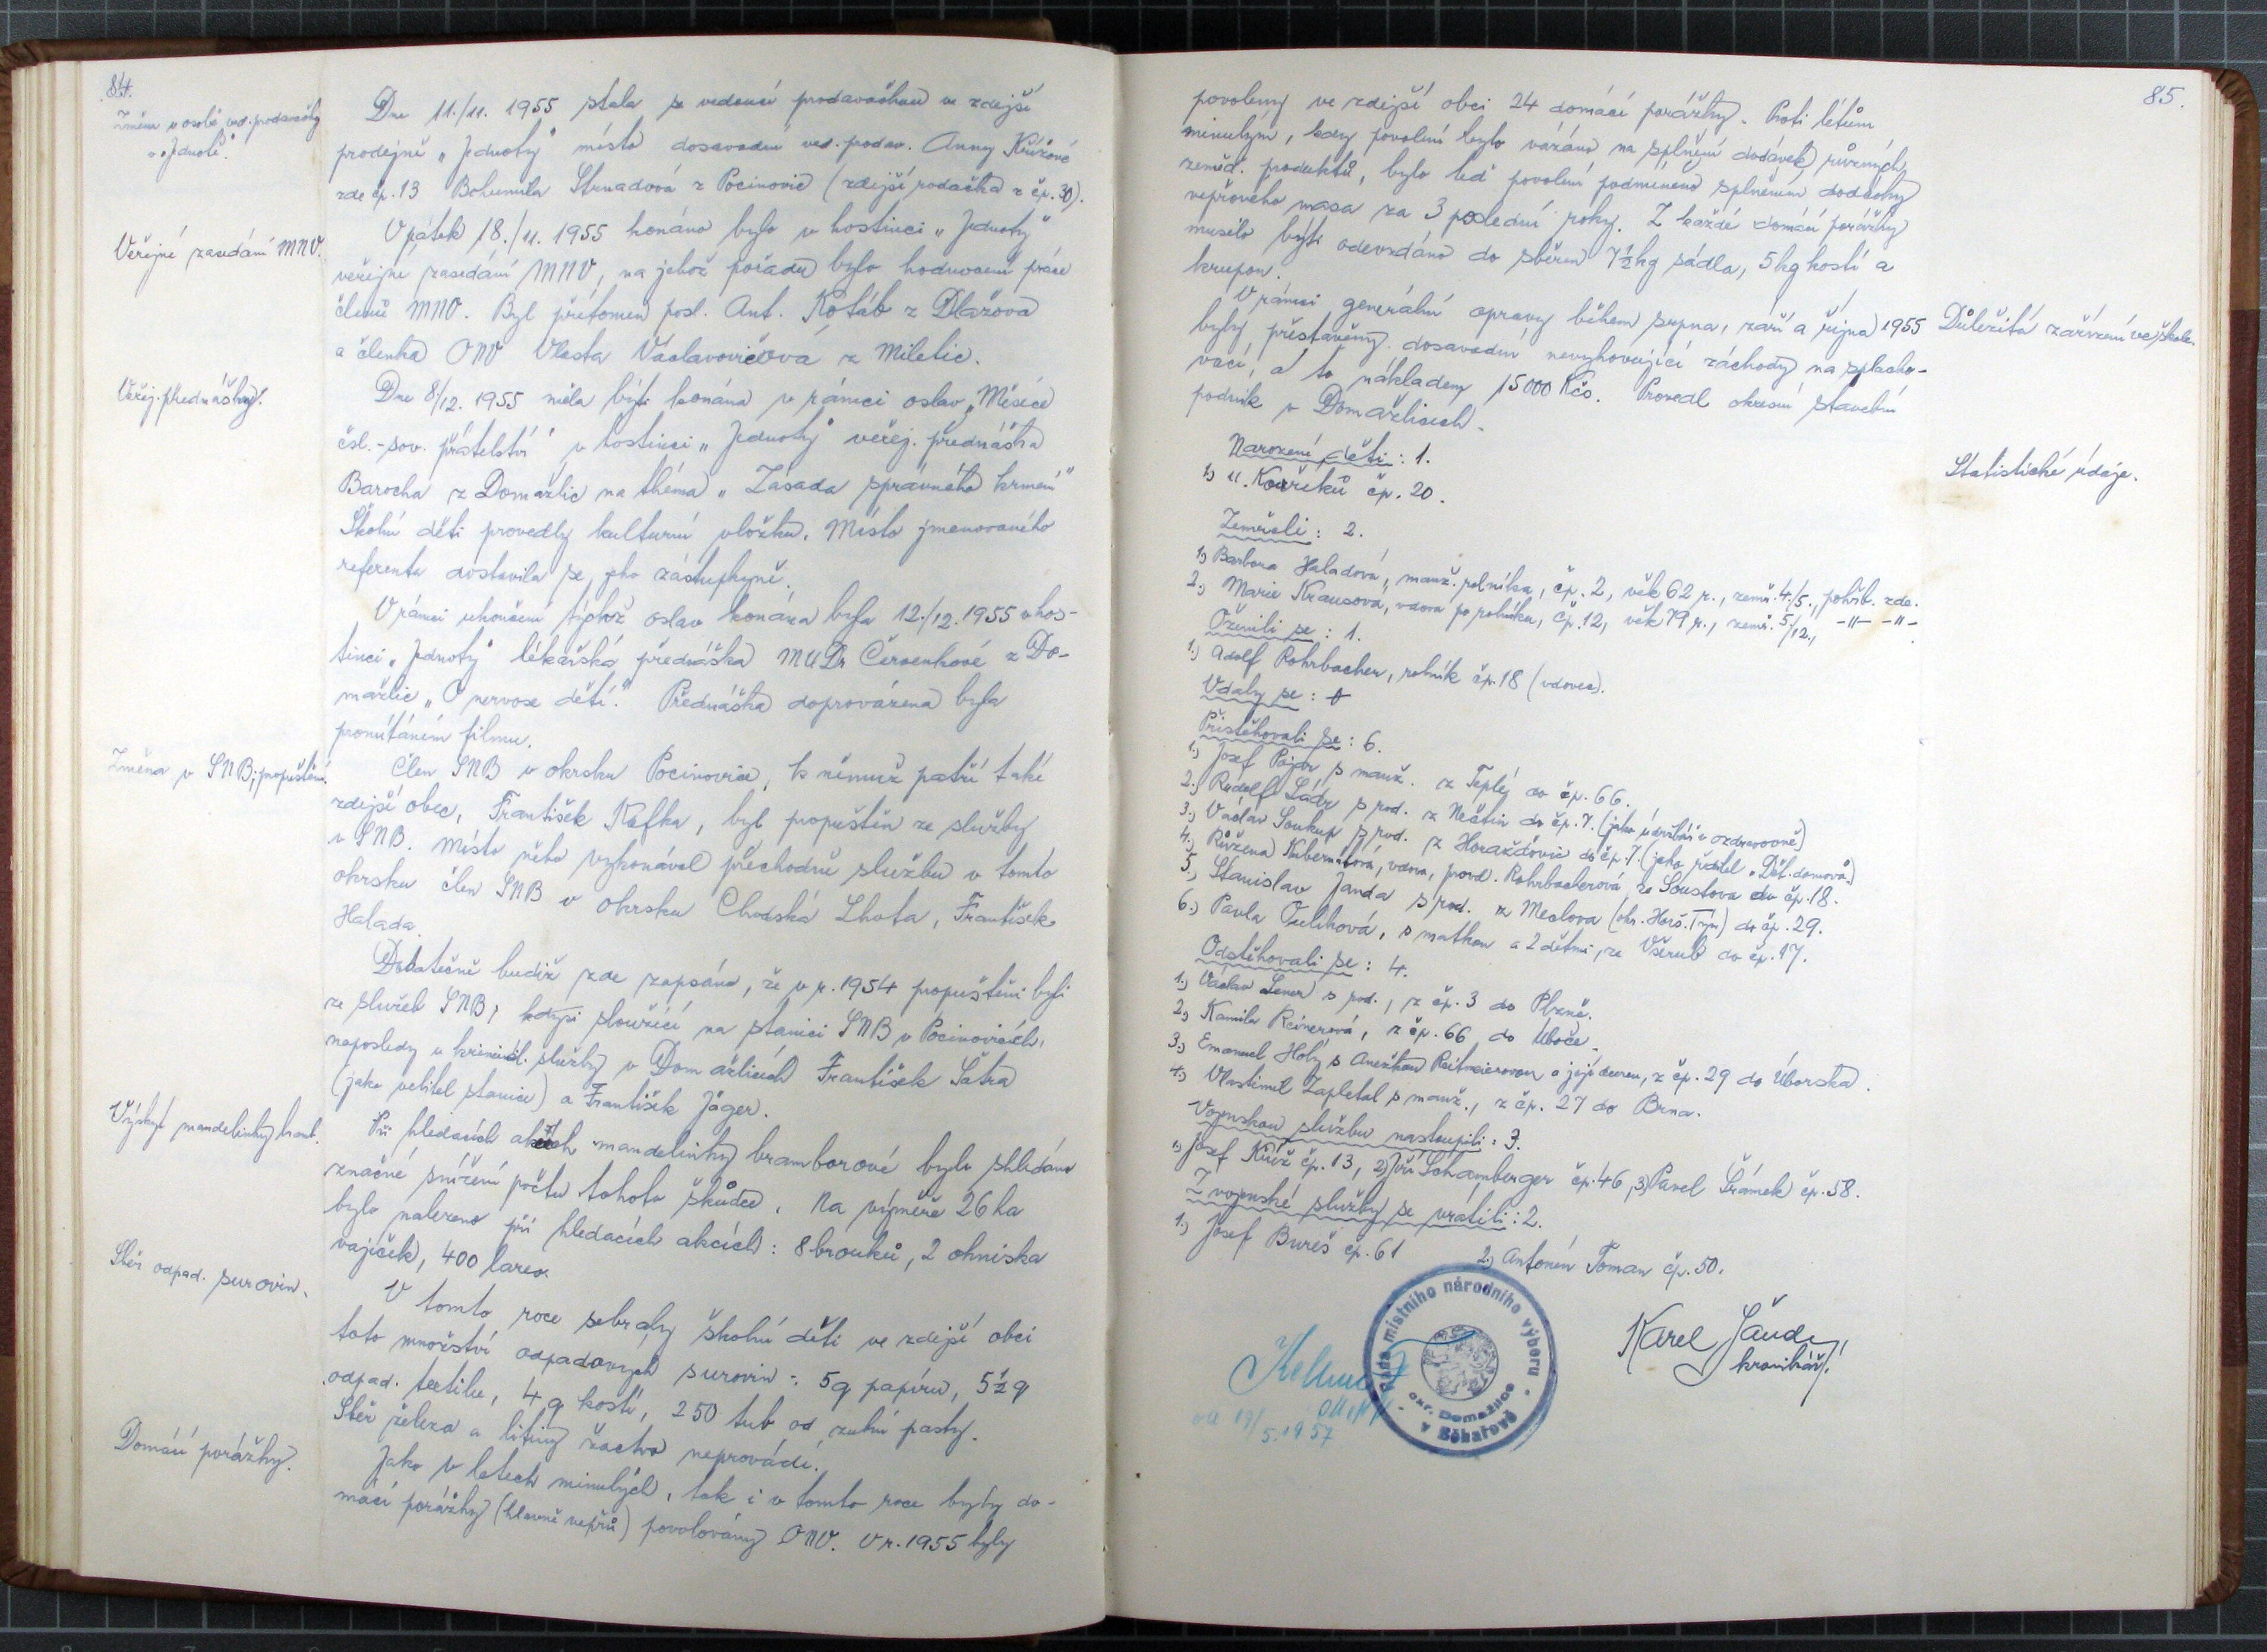 84.
Změna v osobě ved. prodavačky
v „Jednotě“.
Dne 11./11. 1955 stala se vedoucí prodavačkou ve zdejší
prodejně „Jednoty“ místo dosavadní ved. prodav. Anny Křížové
zde čp. 13 Bohumila Strnadová z Pocinovic (zdejší rodačka z čp. 30).
Veřejné zasedání MNV.
V pátek 18./11. 1955 konáno bylo v hostinci „Jednoty“
veřejné zasedání MNV, na jehož pořadu bylo hodnocení práce
členů MNV. Byl přítomen posl. Ant. Kotáb z Dlažova
a členka ONV Vlasta Václavovičová z Miletic.
Veřej. přednášky.
Dne 8/12. 1955 měla býti konána v rámci oslav „Měsíce
čsl.-sov. přátelství“ v hostinci „Jednoty“ veřej. přednáška
Barocha z Domažlic na théma „Zásada správného krmení“
Školní děti provedly kulturní vložku. Místo jmenovaného
referenta dostavila se jeho zástupkyně.
V rámci ukončení týchž oslav konána byla 12./12. 1955 v hos-
tinci „Jednoty“ lékařská přednáška MUDr Červenkové z Do-
mažlic „O nervose dětí.“ Přednáška doprovázena byla
promítáním filmu.
Změna v SNB; propuštění.
Člen SNB v okrsku Pocinovice, k němuž patří také
zdejší obec, František Kafka, byl propuštěn ze služby
v SNB. Místo něho vykonával přechodně službu v tomto
okrsku člen SNB v okrsku Chodská Lhota, František
Halada.
Dodatečně budiž zde zapsáno, že v r. 1954 propuštěni byli
ze služeb SNB, kdysi sloužící na stanici SNB v Pocinovicích,
naposledy u kriminál. služby v Domažlicích František Šatra
(jako velitel stanice) a František Jäger.
Výskyt mandelinky bramb.
Při hledacích akcích mandelinky bramborové bylo shledáno
značné snížení počtu tohoto škůdce. Na výměře 26 ha
bylo nalezeno při hledacích akcích: 8 brouků, 2 ohniska
vajíček, 400 larev.
Sběr odpad. surovin.
V tomto roce sebraly školní děti ve zdejší obci
toto množství odpadových surovin: 5q papíru, 5½ q
odpad. textilu, 4 q kostí, 250 tub od zubní pasty.
Sběr železa a litiny žactvo neprovádí.
Domácí porážky.
Jako v letech minulých, tak i v tomto roce byly do-
mácí porážky (hlavně vepřů) povolovány ONV. V r. 1955 byly
85.
povoleny ve zdejší obci 24 domácí porážky. Proti létům
minulým, kdy povolení bylo vázáno na splnění dodávek různých
zeměd. produktů, bylo teď povolení podmíněno splněním dodávky
vepřového masa za 3 poslední roky. Z každé domácí porážky
muselo býti odevzdáno do sběren 7½ kg sádla, 5 kg kostí a
krupon.
Důležitá zařízení ve škole.
V rámci generální opravy během srpna, září a října 1955
byly přestavěny dosavadní nevyhovující záchody na splacho-
vací, a to nákladem 15000 Kčs. Provedl okresní stavební
podnik v Domažlicích.
Statistické údaje.
Narozené děti: 1.
1) u Kovříků čp. 20.
Zemřeli: 2.
1) Barbora Haladová, manž. rolníka, čp. 2, věk 62 r., zemř. 4./5., pohřb. zde.
2.) Marie Krausová, vdova po rolníku, čp. 12, věk 79 r., zemř. 5/12., -"- -"-
Oženili se: 1.
1.) Adolf Rohrbacher, rolník čp. 18 (vdovec).
Vdaly se: 0
Přistěhovali se: 6.
1.) Josef Pajdr s manž. z Teplé do čp. 66.
2.) Rudolf Ládr s rod. z Nečtin do čp. 7. (jako údržbář v ozdravovně)
3.) Václav Soukup s rod. z Horažďovic do čp. 7. (jako ředitel „Dět. domova“)
4.) Růžena Kubernátová, vdova, provd. Rohrbacherová, ze Soustova do čp. 18.
5.) Stanislav Janda s rod. z Meclova (okr. Horš. Týn) do čp. 29.
6.) Pavla s matkou a 2 dětmi, ze Všerub do čp. 17.
Odstěhovali se: 4.
1.) Václav s rod., z čp. 3 do Plzně.
2.) Kamila Reinerová, z čp. 66 do Úboče.
3.) Emanuel Holý s Anežkou Reitmeierovou a její dcerou, z čp. 29 do Úborska.
4.) Vlastimil Zapletal s manž., z čp. 27 do Brna.
Vojenskou službu nastoupili: 3.
1.) Josef Kříž čp. 13, 2) Jiří Schamberger čp. 46, 3) Pavel Šrámek čp. 58.
Z vojenské služby se vrátili: 2.
1.) Josef Bureš čp. 61 2.) Antonín Toman čp. 50.
Rada místního národního výboru
okr. Domažlice
v
Karel
kronikář.
19/5. 1957